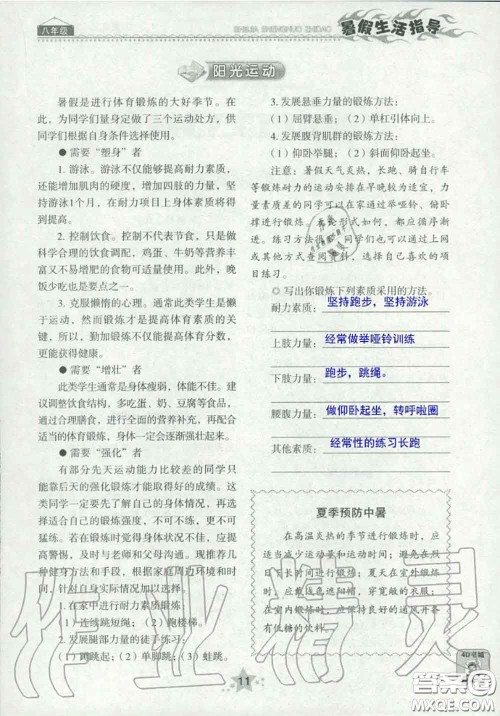 八年级
SHUJIA SHENGHUO ZHIDAO
暑假生活指导
阳光运动
暑假是进行体育锻炼的大好季节。在
此，为同学们量身定做了三个运动处方，供
同学们根据自身条件选择使用。
●需要“塑身”者
1. 游泳。游泳不仅能够提高耐力素质，
还能增加肌肉的硬度，增加四肢的力量，坚
持游泳1个月，在耐力项目上身体素质将得
到提高。
2. 控制饮食。控制不代表节食，只是做
科学合理的饮食调配，鸡蛋、牛奶等营养丰
富又不易增肥的食物可适量使用。此外，晚
饭少吃也是要点之一。
3. 克服懒惰的心理。通常此类学生是懒
于运动，然而锻炼才是提高体育素质的关
键，所以，勤加锻炼不仅能提高体育分数，
更能获得健康。
●需要“增壮”者
此类学生通常是身体瘦弱，体能不佳。建
议调整饮食结构，多吃蛋、奶、豆、瘦肉等，
通过合理膳食，进行全面的营养补充，再配合
适当的体育锻炼，身体一定会逐渐强壮起来。
●需要“强化”者
有部分先天运动能力比较差的同学只
能靠后天的强化锻炼才能取得好的成绩。这
类同学一定要先了解自己的身体情况，再选
择适合自己的锻炼强度，不可不练，更不可
猛练。若在锻炼时觉得身体状况不好，应提
高警惕，及时与老师和父母沟通。现推荐几
种健身方法和手段，根据家庭周边环境和时
间，针对自身实际情况加以选择。
1. 在家中进行耐力素质锻炼
（1）连续跳短绳；（2）跑楼梯。
2. 发展腿部力量的徒手练习：
（1）蹲跳起；（2）单脚跳；（3）蛙跳。
3. 发展悬垂力量的锻炼方法：
（1）屈臂悬垂；（2）单杠引体向上。
4. 发展腹背肌群的锻炼方法：
（1）仰卧举腿；（2）斜面仰卧起坐。
注意：暑假天气炎热，长跑、骑自行车
等锻炼耐力的运动安排在早晚较为适宜，力
量素质差的同学可以在家通过举哑铃、俯卧
撑进行锻炼。无论形式如何，都应循序渐
进。练习方法很多，同学们可以通过上网或
其他方式查阅资料，选择自己喜欢的项
目练习。
◎ 写出你锻炼下列素质采用的方法。
耐力素质：坚持跑步，坚持游泳
上肢力量：经常做举哑铃训练
下肢力量：跑步，跳绳。
腰腹力量：做仰卧起坐，转呼啦圈
其他素质：经常性的练习长跑
夏季预防中暑
在高温炎热的季节进行锻炼时，应
适当减少运动量和运动时间；避免在烈
日下长时间进行锻炼；夏天在室外锻炼
时，应戴线遮阳帽，穿宽敞的衣服；
在室内锻炼时，应保持良好的通风并备
有低糖的饮料。
11
作业精灵